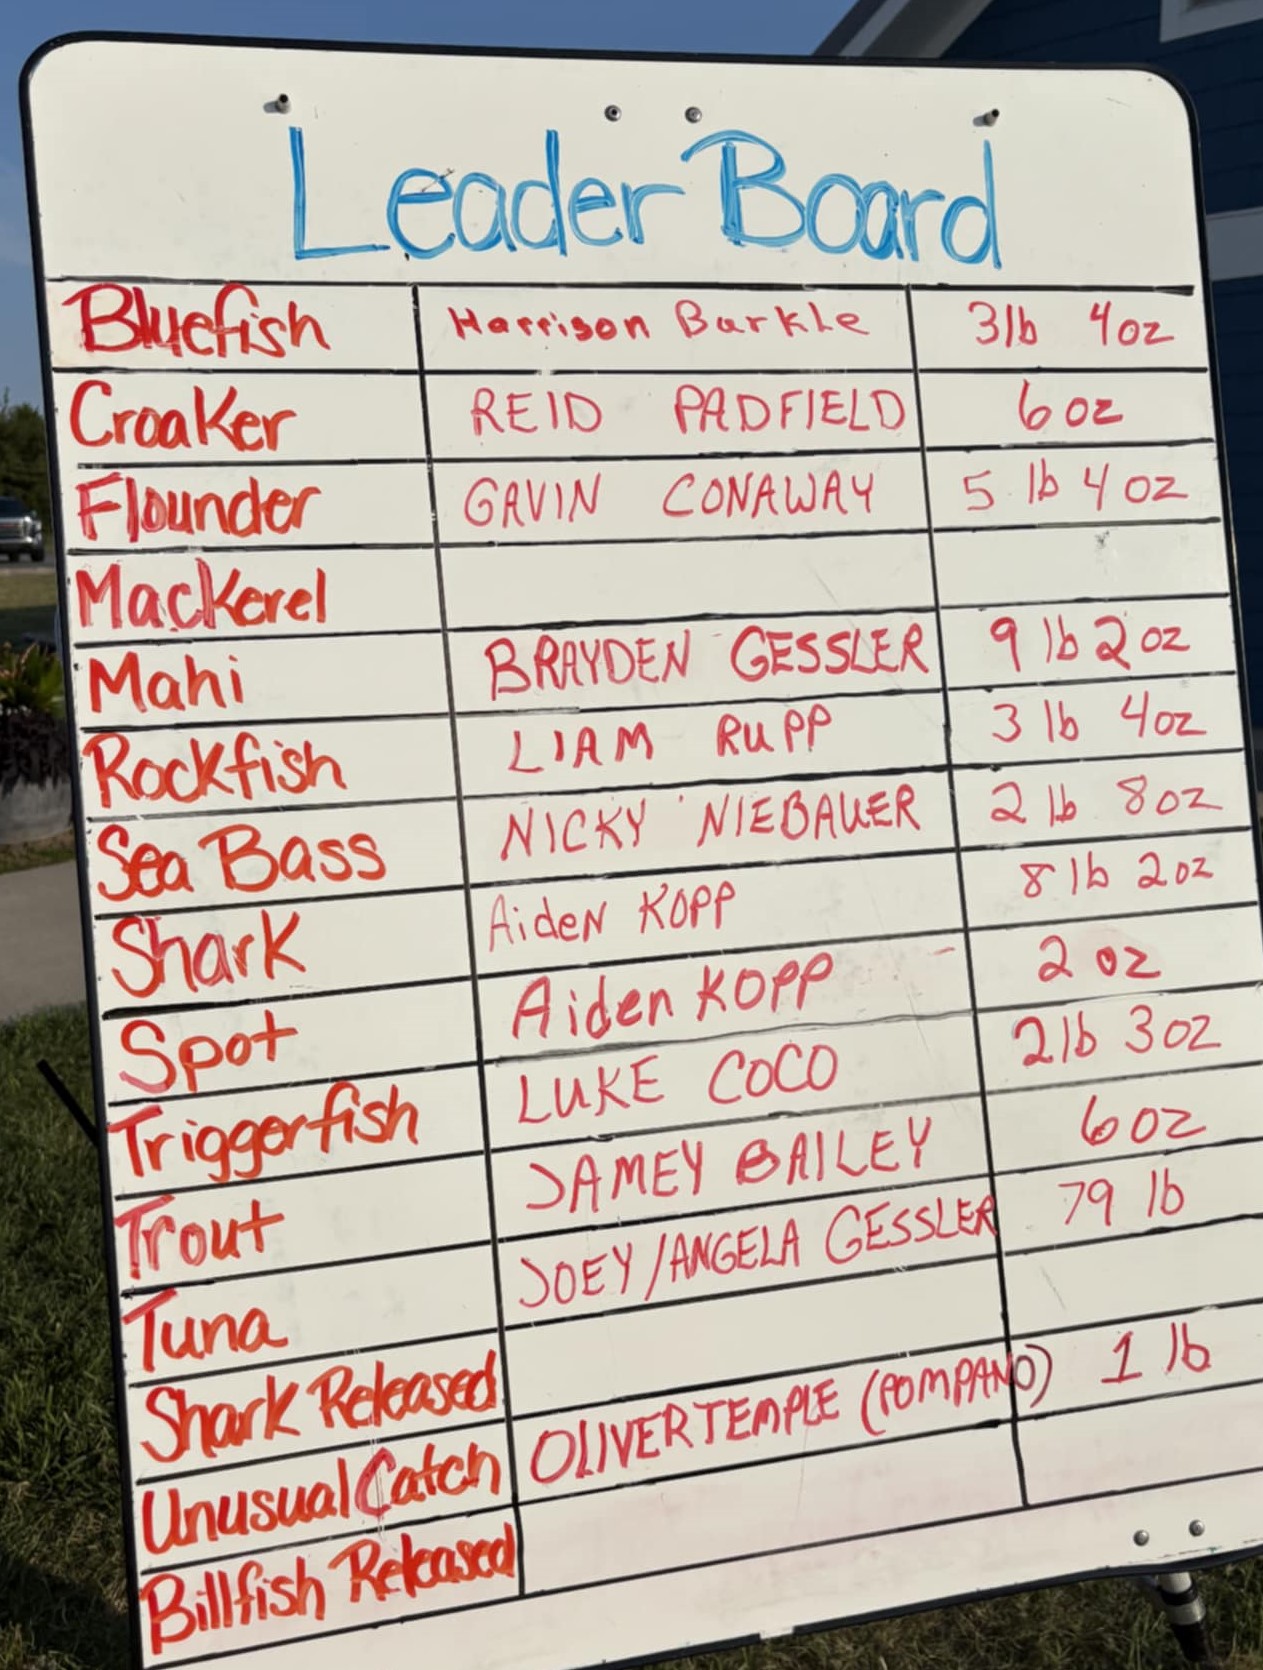 Leader Board
Bluefish Harrison Burkle 3lb 4oz
Croaker REID PADFIELD 6 oz
Flounder GAVIN CONAWAY 5 lb 4 oz
Mackerel
Mahi BRAYDEN GESSLER 9 lb 2 oz
Rockfish LIAM RUPP 3 lb 4oz
Sea Bass NICKY NIEBAUER 2 lb 8oz
Shark AideN KOPP 8 lb 2oz
Spot Aiden KOPP 2 oz
Triggerfish LUKE COCO 2lb 3oz
Trout JAMEY BAILEY 6 oz
Tuna JOEY/ANGELA GESSLER 79 lb
Shark Released
Unusual Catch OLIVER TEMPLE (POMPANO) 1 lb
Billfish Released